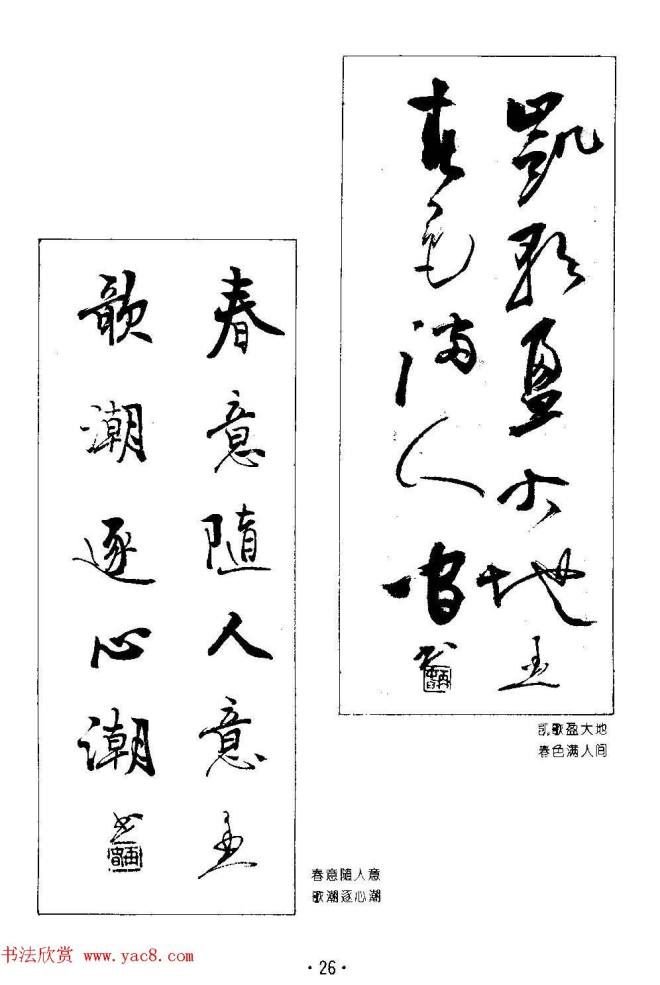 凱歌盈大地
春色满人间
凯歌盈大地
春色满人间
春意随人意
歌潮逐心潮
春意随人意
歌潮逐心潮
书法欣赏 www.yac8.com
·26·